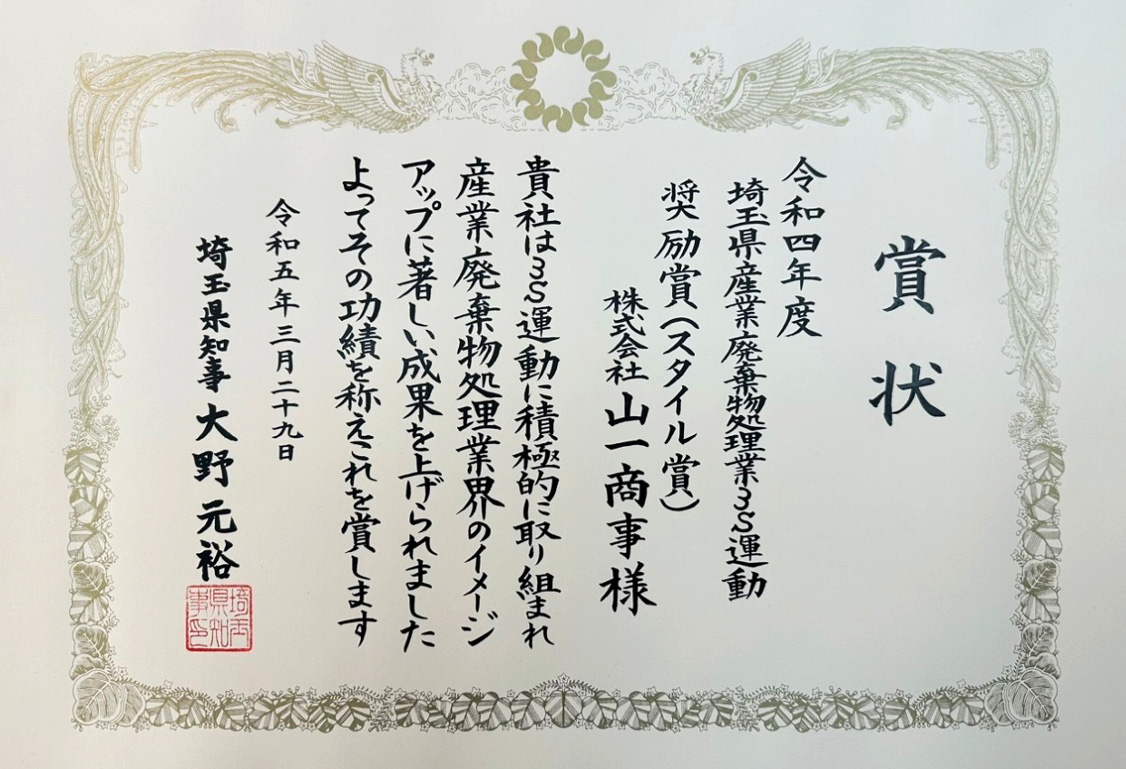 賞状
令和四年度
埼玉県産業廃棄物処理業3S運動
奨励賞(スタイル賞)
株式会社 山一商事様
貴社は3S運動に積極的に取り組まれ
産業廃棄物処理業界のイメージ
アップに著しい成果を上げられました
よってその功績を称えこれを賞します
令和五年三月二十九日
埼玉県知事 大野元裕
埼玉
県知
事印